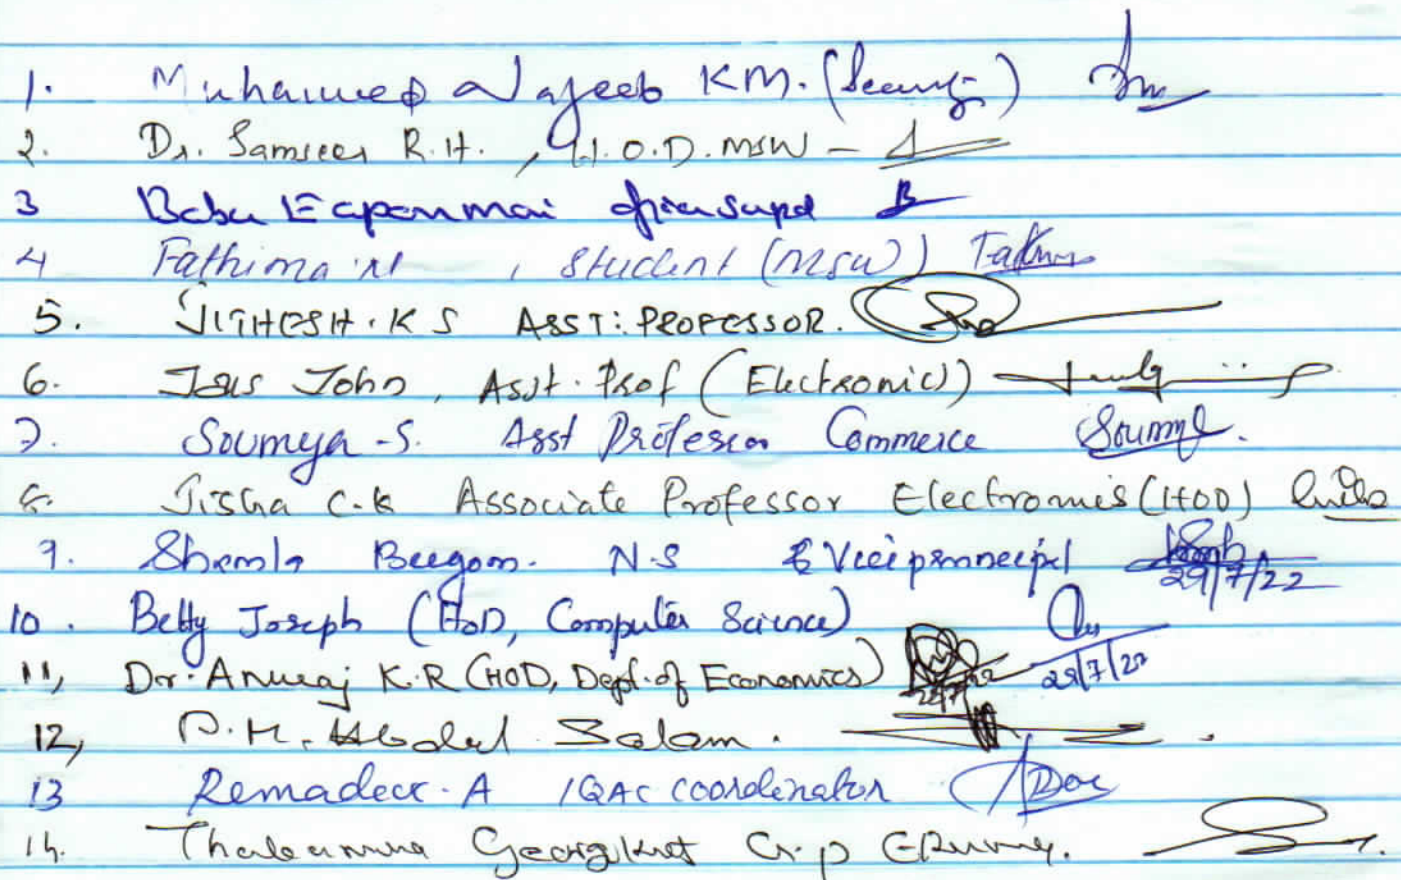 1. Muhammed Najeeb KM. (Secretary)
2. Dr. Sameer R.H., H.O.D. MSW -
3 Babu Eapen
4 Fathima N, Student (MSW) Fathima
5. JITHESH. K S ASST: PROFESSOR.
6. John, Asst. Prof (Electronics)
7. Soumya -S. Asst Professor Commerce Soumya.
8. Jisha C.K Associate Professor Electronics (HOD)
9. Shemla Beegom. N.S Vice principal 29/7/22
10. Betty Joseph (HoD, Computer Science)
11, Dr. Anuraj K.R (HOD, Dept. of Economics) 29/7/22
12, P.M. Abdul Salam.
13 Remadevi. A IQAC coordinator
14.